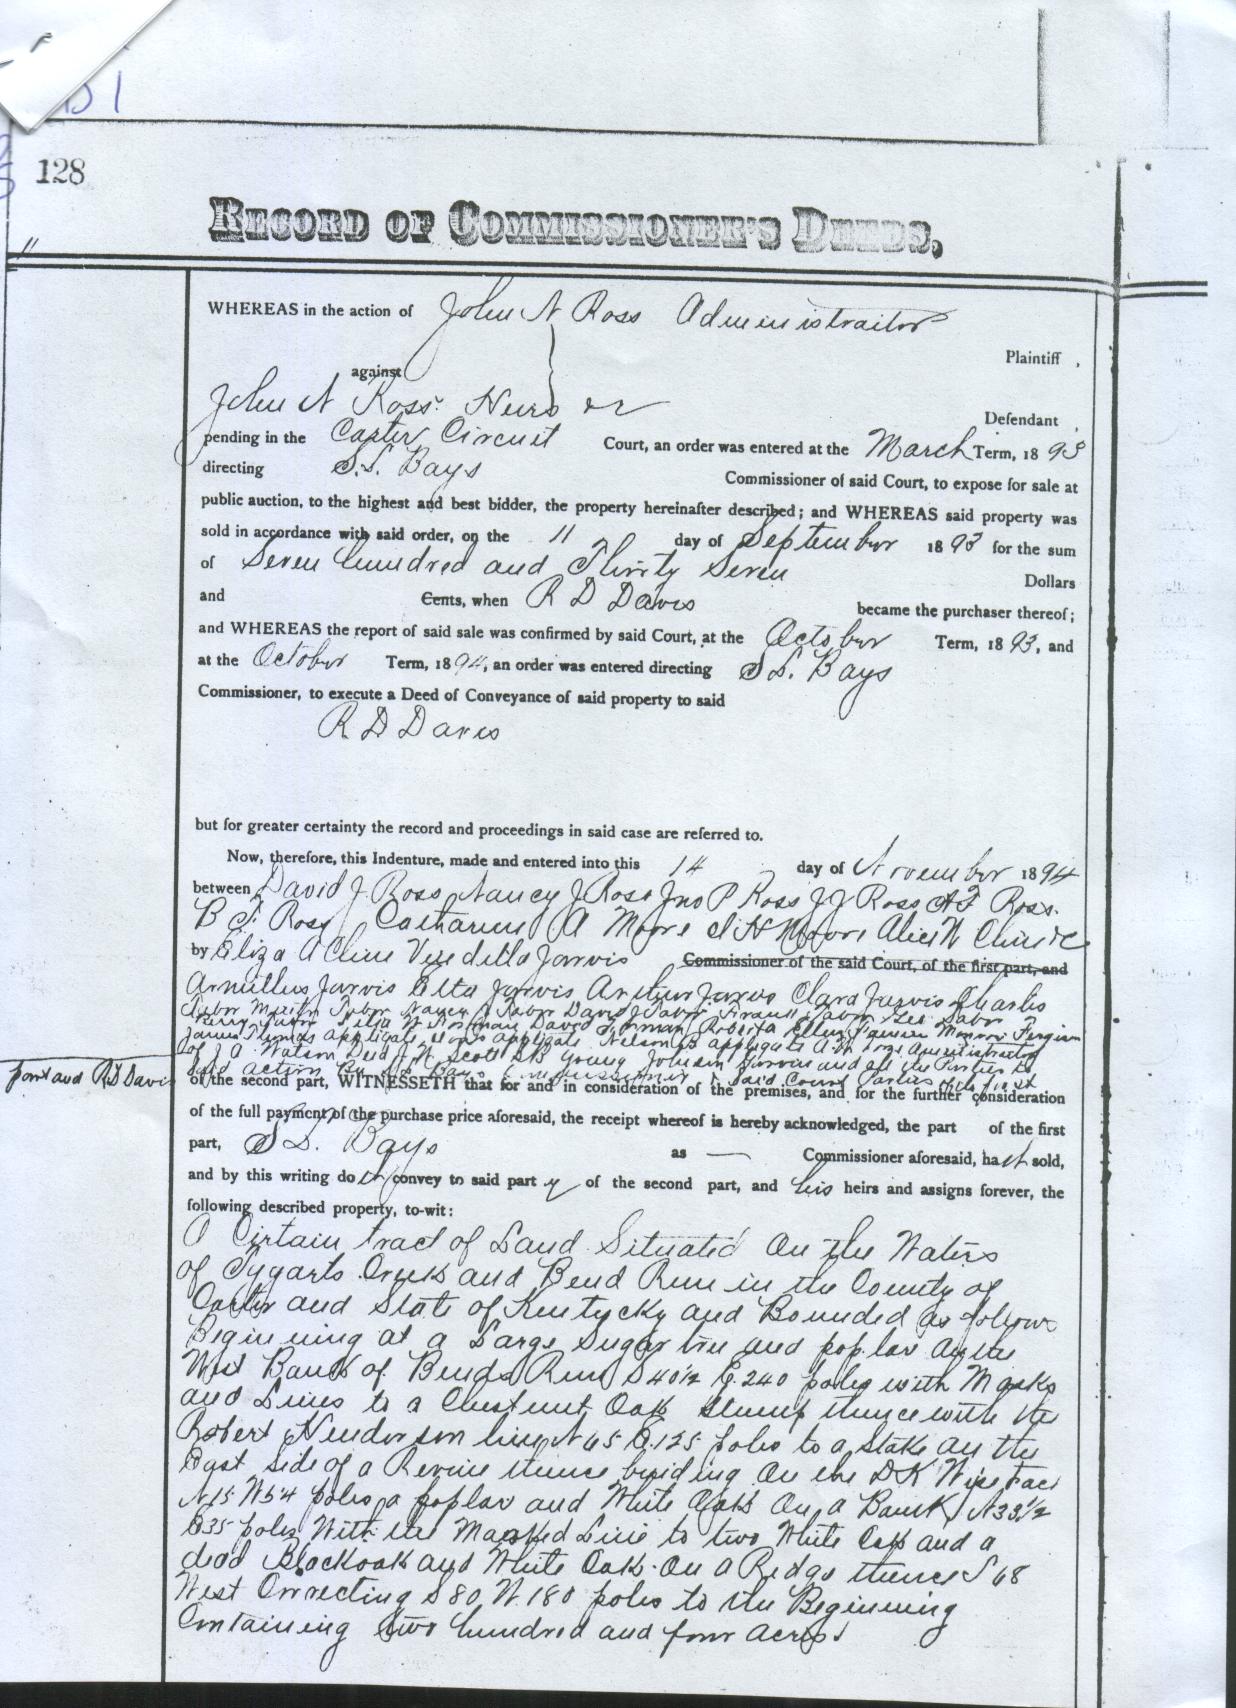 128
RECORD OF COMMISSIONER'S DEEDS,
WHEREAS in the action of John N Ross Administraitor
Plaintiff,
against
John N Ross. Heirs &c
Defendant,
pending in the Carter Circuit Court, an order was entered at the March Term, 1893
directing S.L. Bays Commissioner of said Court, to expose for sale at
public auction, to the highest and best bidder, the property hereinafter described; and WHEREAS said property was
sold in accordance with said order, on the 11 day of September 1893 for the sum
of Seven hundred and Thirty Seven Dollars
and Cents, when R D Davis became the purchaser thereof;
and WHEREAS the report of said sale was confirmed by said Court, at the October Term, 1893, and
at the October Term, 1894, an order was entered directing S L. Bays
Commissioner, to execute a Deed of Conveyance of said property to said
R D Davis
but for greater certainty the record and proceedings in said case are referred to.
Now, therefore, this Indenture, made and entered into this 14 day of November 1894
between David J Ross Nancy J Ross Jno P Ross J J Ross A F Ross.
B F. Ross Catharine A Moore I H Moore Alice N Cline &c
by Eliza A Cline Verdella Jarvis Commissioner of the said Court, of the first part, and
Armillus Jarvis Elta Jarvis Arthur Jarvis Clara Jarvis Charles
Tabor Tabor Nancy Tabor David J Tabor Frank Tabor Lee Tabor
Perry Tabor David Forman Roberta Ellen
James Thomas Applegate Applegate Nelson B Applegate Administrator
of J A Watson Decd J W Scott S B Young Johnson Jarvis and all the Parties to
said action By S L Bays Commissioner of said Court Parties of the first
part and R D Davis
of the second part, WITNESSETH that for and in consideration of the premises, and for the further consideration
of the full payment of the purchase price aforesaid, the receipt whereof is hereby acknowledged, the part of the first
part, S L. Bays as — Commissioner aforesaid, hath sold,
and by this writing doth convey to said party of the second part, and his heirs and assigns forever, the
following described property, to-wit:
A Cirtain tract of Land Situated On the Waters
of Tygarts Creek and Bend Run in the County of
Carter and State of Kentycky and Bounded as follows
Beginning at a Large Sugar tree and poplar on the
West Bank of Bends Run S 40½ E 240 poles with Marks
and Lines to a Chestnut Oak Stump thence with the
Robert Henderson line N 65 E. 125 poles to a Stake on the
East side of a Revine thence binding On the D K Wise tract
N 15 W 54 poles a poplar and White Oak On a Bank N 33½
E 35 poles With the Marked Line to two White Oak and a
dead Blackoak and White Oak. On a Ridge thence S 68
West Correcting S 80 W. 180 poles to the Beginning
Containing two hundred and four acres